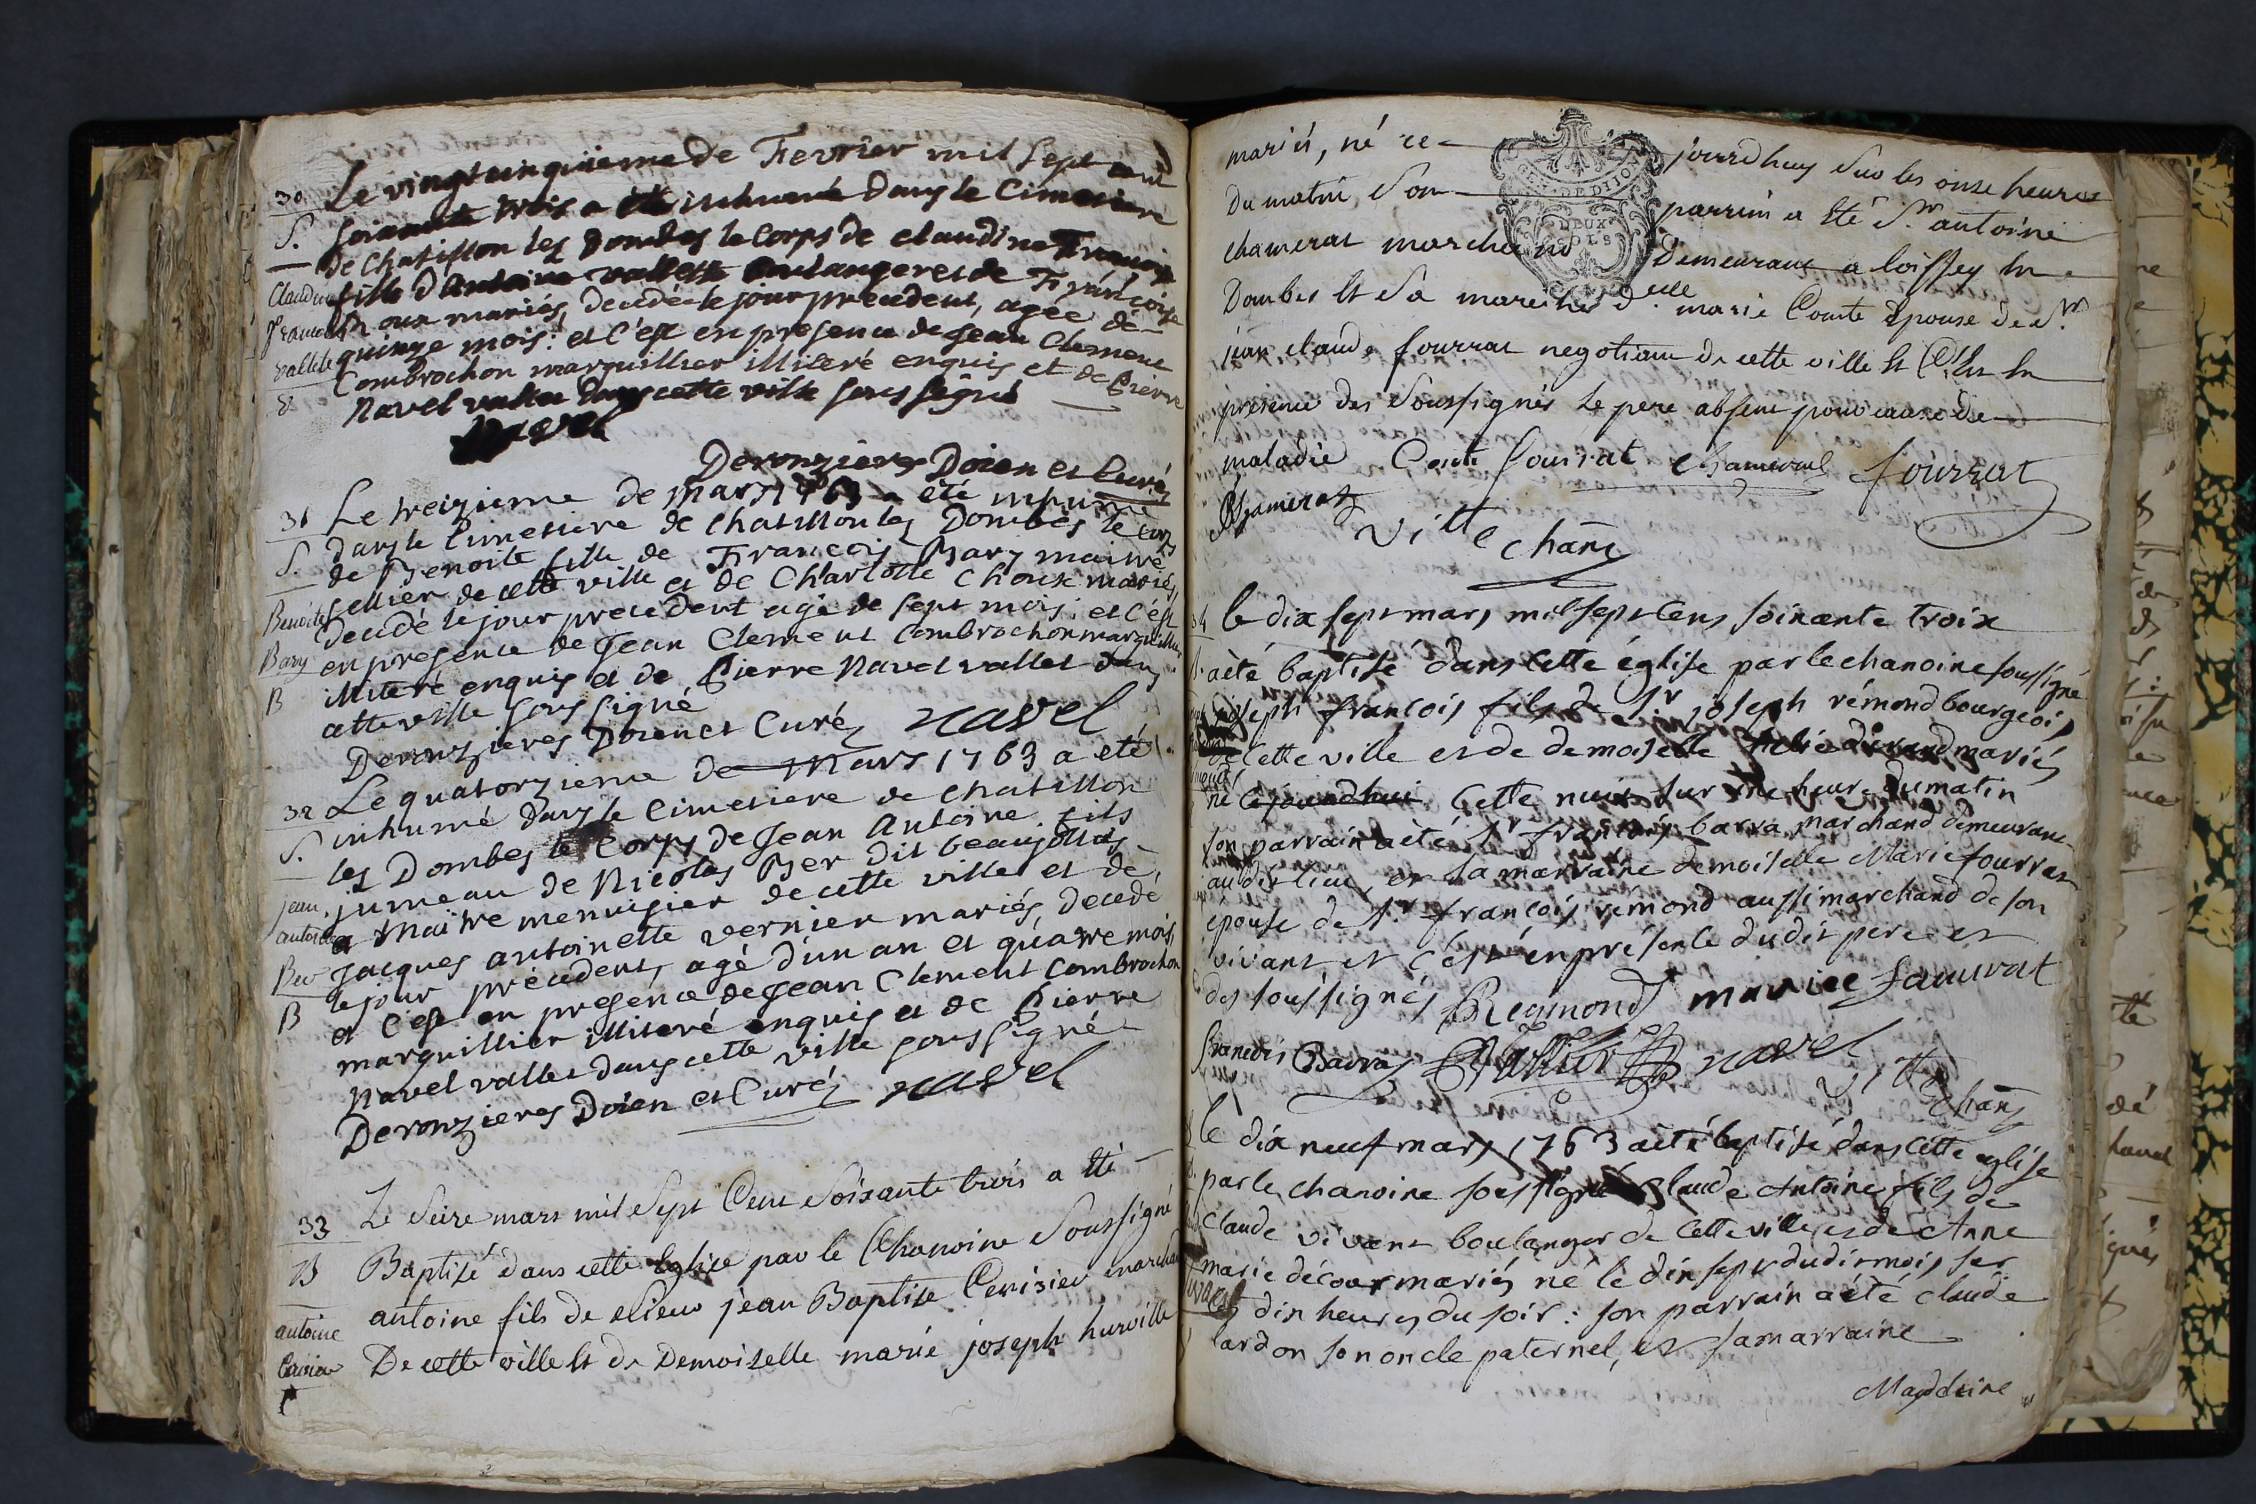 30
S.
Claudine
Francoise
vallete
Le vingtcinquieme de Fevrier mil sept cent
soixante trois a été inhumé dans le Cimetiere
de Chatillon les Dombes le corps de claudine Francoise
fille d'Antoine vallette boulanger et de Françoise
Roux mariés, decedée le jour precedent, agée de
quinze mois: et c'est en presence de Jean Clement
Combrochon marguillier illiteré enquis et de Pierre
Navel vallet dans cette ville soussigné
Navel
Deronzieres Doien et Curé
31
S.
Benoite
Bary
B
Le treizieme de mars 1763 a été inhumé
dans le Cimetiere de Chatillon les Dombes le corps
de Benoite fille de François Bary maitre
sellier de cette ville et de Charlotte Choux mariés,
decedé le jour precedent agé de sept mois: et c'est
en presence de Jean Clement Combrochon marguillier
illiteré enquis et de Pierre Navel vallet dans
cette ville soussigné
Deronzieres Doien et Curé navel
32
S.
jean.
antoine
Ber
B
Le quatorzieme de Mars 1763 a été
inhumé dans le Cimetiere de chatillon
les Dombes le Corps de Jean Antoine fils
jumeau de Nicolas Ber dit beaujollais
Maitre menuisier de cette ville et de
Jacques antoinette vernier mariés, decedé
le jour précedent, agé d'un an et quatre mois
et c'est en presence de Jean Clement Combrochon
marguillier illiteré enquis et de Pierre
Navel vallet dans cette ville soussigné
Deronzieres Doien et Curé navel
33
B
antoine
Cerisier
Le Seize mars mil Sept Cent Soixante trois a été
Baptisé dans cette Eglise par le Chanoine Soussigné
antoine fils de Sieur jean Baptiste Cerisier marchand
De cette ville et de Demoiselle marie joseph hurville
mariés, né ce jourdhuy Sur les onze heures
Du matin, Son parrein a été Sr. antoine
chamerat marchand Demeurant a loissey en
Dombes et Sa mareine delle. marie Comte Epouse de Sr.
jean claude fourrat negotiant de cette ville et C'est en
presence des Soussignés le pere absent pour cause de
maladie Comte fourrat chamerat fourrat
Chamerat
Ville chan
34
le dix sept mars mil sept cens soixante troix
a été baptisé dans cette église par le chanoine soussigné
joseph françois fils de Sr. joseph rémond bourgeois
de cette ville et de demoiselle mariés
né cejourdhui cette nuit sur une heure du matin
son parrain a été Sr françois barra marchand demeurant
audit lieu, et sa marraine demoiselle Marie fourrat
épouse de Sr. françois rémond aussi marchand de son
vivant et c'est en présence dudit pere et
des soussignés Reimond mariee faurrat
francois Barra navel Ville
chan
le dix neuf mars 1763 a été baptisé dans cette eglise
par le chanoine soussigné Claude Antoine fils de
Claude vivant boulanger de cette ville et de Anne
marie décour mariés né le dix sept dudit mois sur
les dix heures du soir: son parrain a été claude
lardon son oncle paternel, et sa marraine
Magdeleine